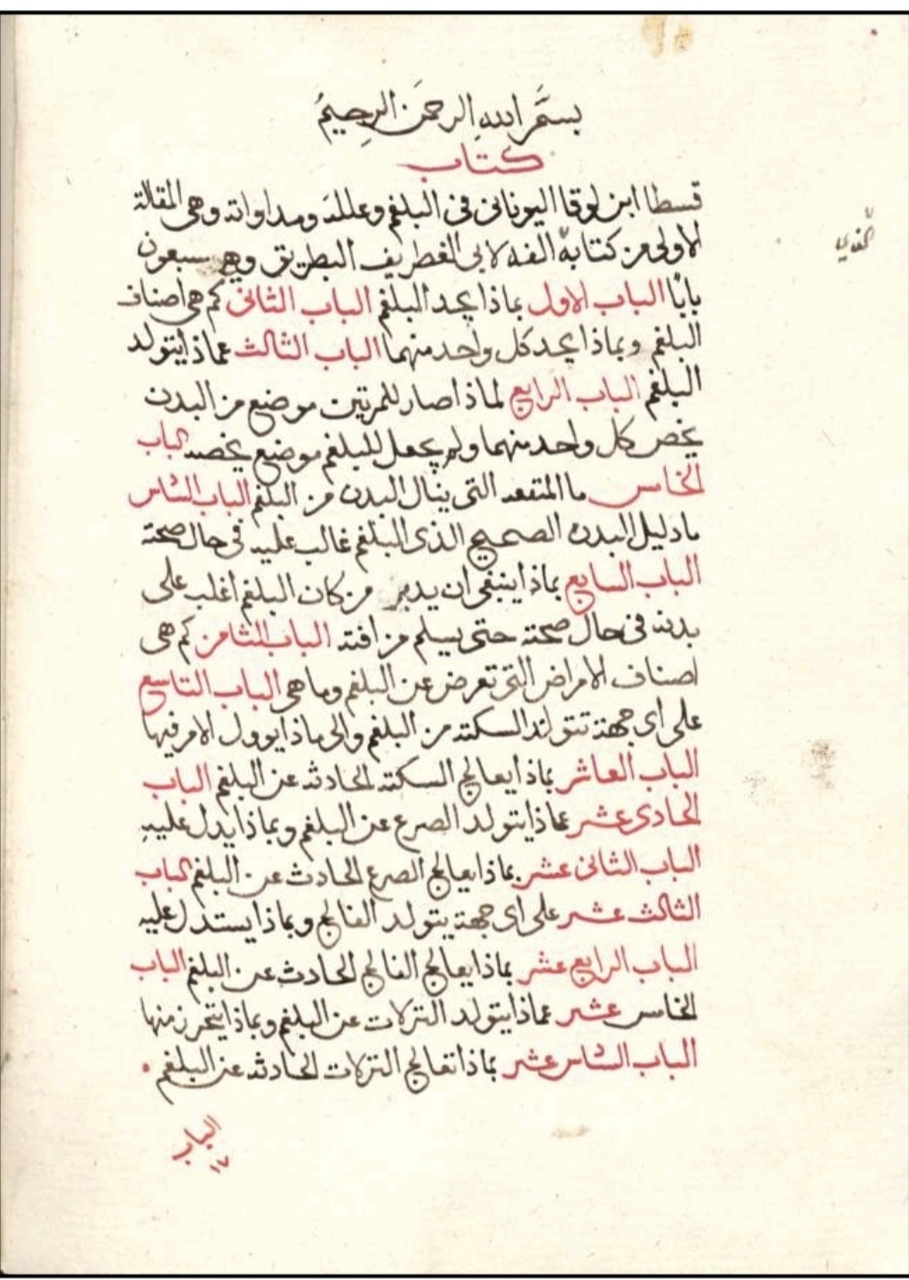 بسم الله الرحمن الرحيم
كتاب
قسطا ابن لوقا اليوناني في البلغم وعلله ومداواته وهي المقالة
الاولى من كتابه الفه لابي الغطريف البطريق وهي سبعون
الذي
بابًا الباب الاول بماذا يحد البلغم الباب الثاني كم هي اصناف
البلغم وبماذا يحد كل واحد منهما الباب الثالث عماذا يتولد
البلغم الباب الرابع لماذا صار للمرتين موضع من البدن
يخص كل واحد منهما ولم يجعل للبلغم موضع يخصه الباب
الخامس ما المنفعه التي ينال البدن من البلغم الباب السادس
ما دليل البدن الصحيح الذي البلغم غالب عليه في حال صحته
الباب السابع بماذا ينبغي ان يدبر من كان البلغم اغلب على
بدنه في حال صحته حتى يسلم من افته الباب الثامن كم هي
اصناف الامراض التي تعرض عن البلغم وما هي الباب التاسع
على اي جهة تتولد السكته من البلغم والى ماذا يوول الامر فيها
الباب العاشر بماذا يعالج السكته الحادثه عن البلغم الباب
الحادي عشر عماذا يتولد الصرع عن البلغم وبماذا يدل عليه
الباب الثاني عشر بماذا يعالج الصرع الحادث عن البلغم الباب
الثالث عشر على اي جهة يتولد الفالج وبماذا يستدل عليه
الباب الرابع عشر بماذا يعالج الفالج الحادث عن البلغم الباب
الخامس عشر عماذا يتولد النزلات عن البلغم وبماذا يتحرز منها
الباب السادس عشر بماذا تعالج النزلات الحادثه عن البلغم
الباب